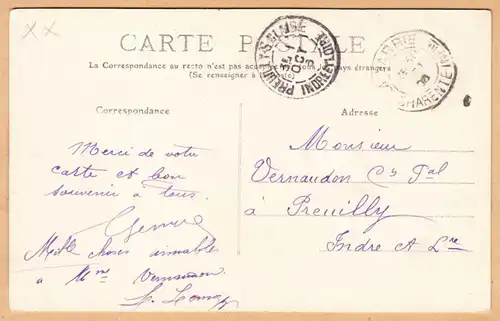 XX
CARTE POSTALE
La Correspondance au recto n'est pas acceptée par tous les pays étrangers
(Se renseigner à
PREUILLY-S-CLAISE INDRE-ET-LOIRE
CHARENTE
Correspondance
Adresse
Merci de votre
carte et bon
souvenir à tous.
Mille choses aimable
à Mme Vernaudon
Monsieur
Vernaudon Cr Pal
à Preuilly
Indre et Lre